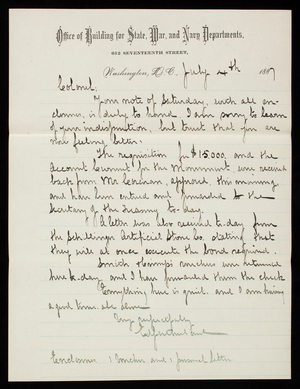 Office of Building for State, War, and Navy Departments.
612 SEVENTEENTH STREET,
Washington, D.C., July 4th 1887
Colonel,
Your note of Saturday, with all en-
closures, is duly to hand. I am sorry to learn
of your indisposition, but trust that you are
now feeling better.
The requisition for $15,000 and the
Account Current for the Monument were received
back from Mr. approved, this morning
and have been entered and forwarded to the
Secretary of the Treasury to-day.
A letter was also received to-day from
the Schillinger Artificial Stone Co. stating that
they will at once execute the bond required.
Smith & voucher was returned
here to-day and I have forwarded them the check
Everything here is quiet and I am having
a good time all alone
Very respectfully
Enclosures 1 voucher and 1 personal letter